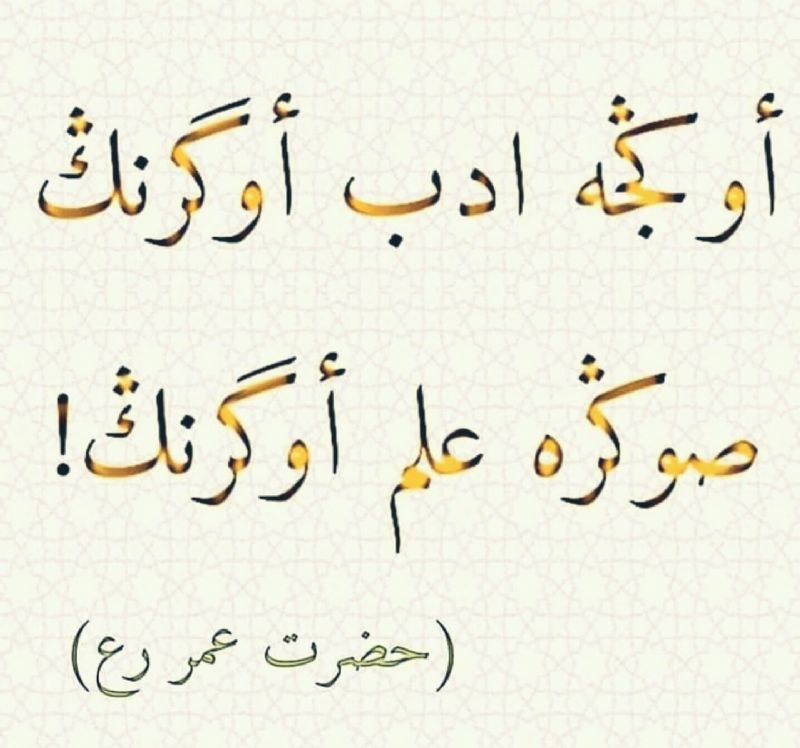 أوڭجه ادب أوگرنڭ
صوڭره علم أوگرنڭ!
(حضرت عمر رع)